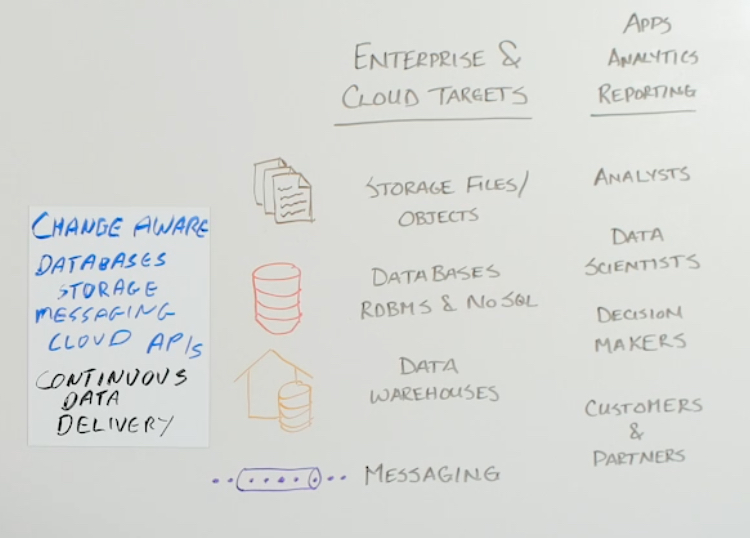 CHANGE AWARE
DATABASES
STORAGE
MESSAGING
CLOUD APIs
CONTINUOUS
DATA
DELIVERY
ENTERPRISE &
CLOUD TARGETS
STORAGE FILES/
OBJECTS
DATABASES
RDBMS & NoSQL
DATA
WAREHOUSES
MESSAGING
APPS
ANALYTICS
REPORTING
ANALYSTS
DATA
SCIENTISTS
DECISION
MAKERS
CUSTOMERS
&
PARTNERS